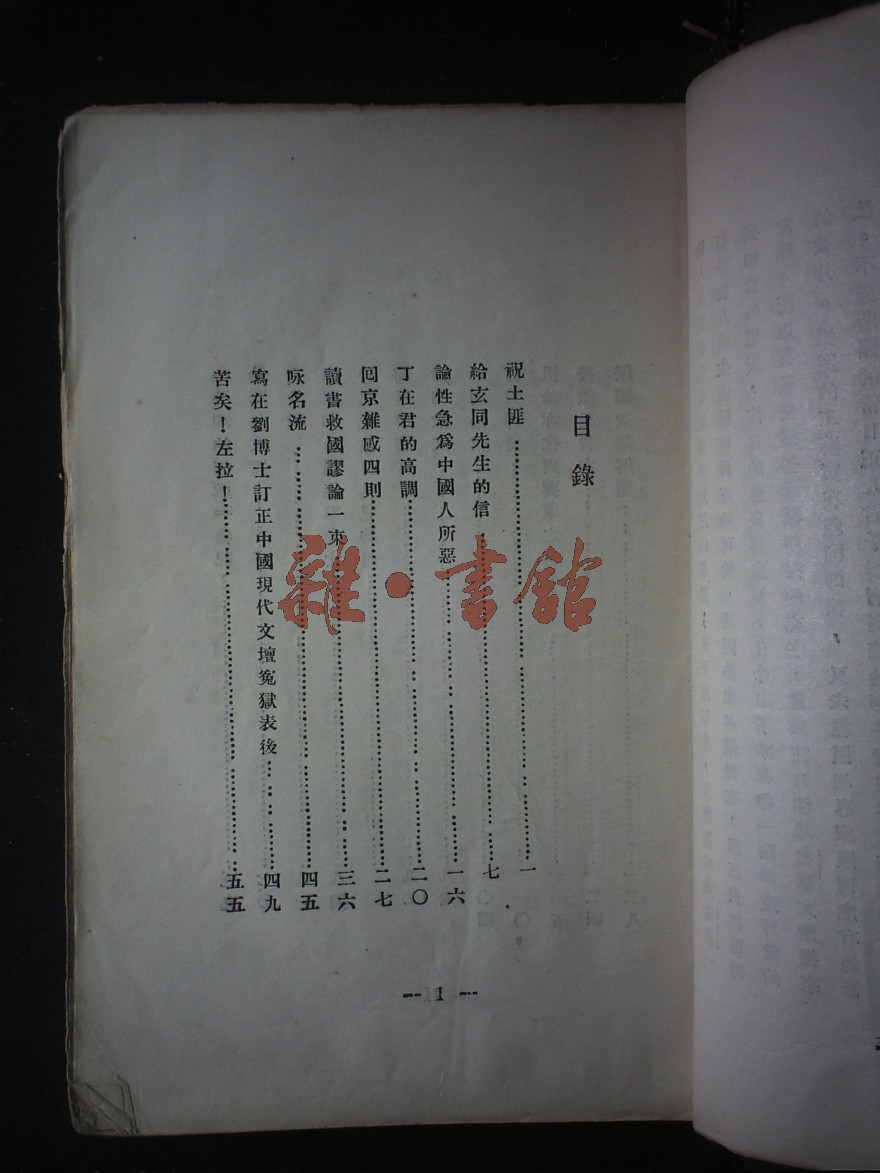 目錄
祝土匪…………一
給玄同先生的信…………七
論性急為中國人所惡…………一六
丁在君的高調…………二〇
回京雜感四則…………二七
讀書救國謬論一束…………三六
咏名流…………四五
寫在劉博士訂正中國現代文壇冤獄表後…………四九
苦矣！左拉！…………五五
-- 1 --
雜·書館